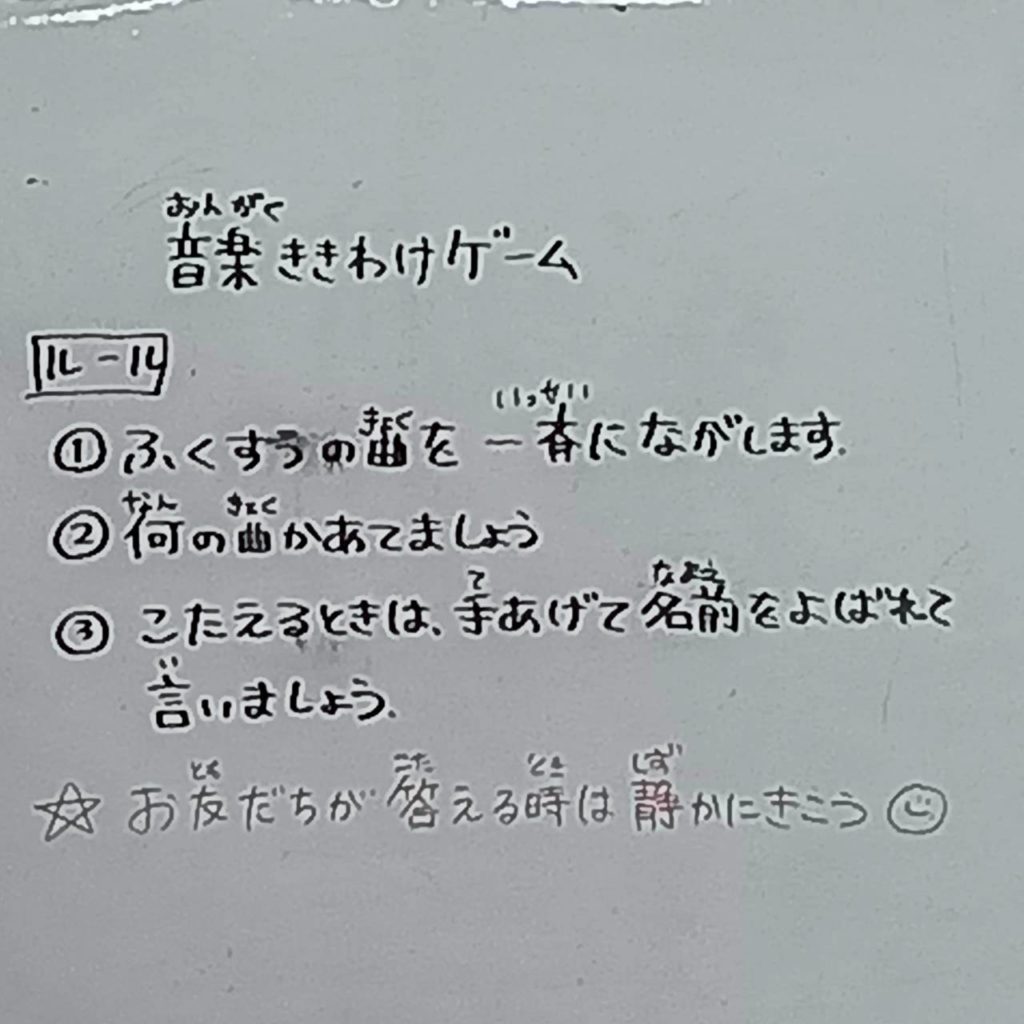 おんがく
音楽ききわけゲーム
ルール
きょく いっせい
① ふくすうの曲を一斉にながします.
なん きょく
② 何の曲かあてましょう
て なまえ
③ こたえるときは、手あげて名前をよばれて
い
言いましょう.
とも こた とき しず
☆ お友だちが答える時は静かにきこう